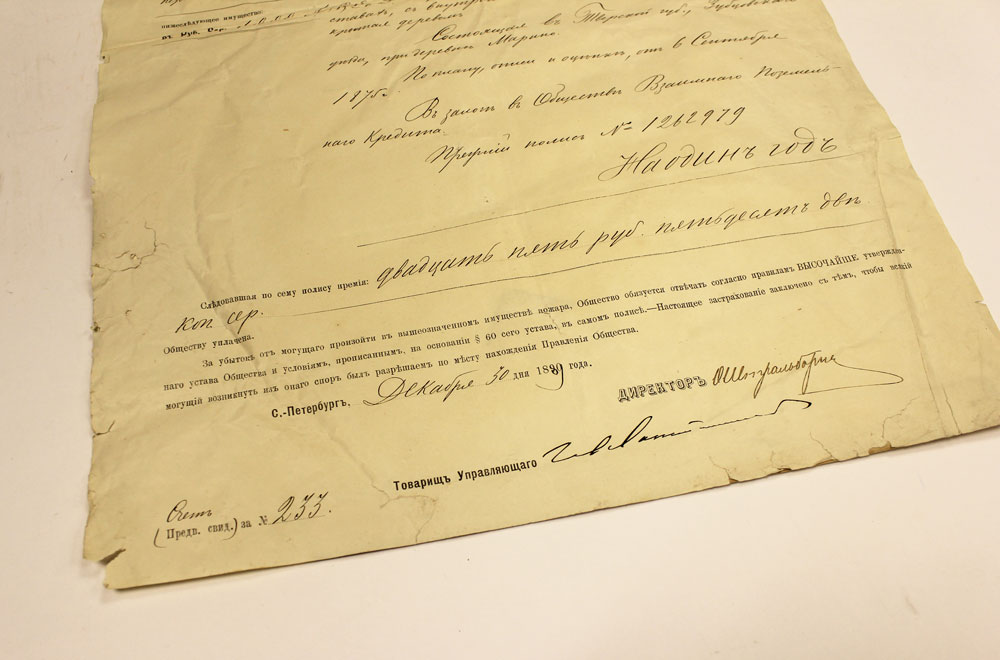 нижеслѣдующее имущество:
въ Руб. Сер.
ставать, съ внутри
крытая деревом
Состоящая въ Тверской губ., Зубцовскаго
уѣзда, при деревнѣ Марино.
По плану, описи и оцѣнки, отъ 6 Сентября
1875 г.
Въ залогѣ въ Обществѣ Взаимнаго Поземель-
наго Кредита.
Прежній полисъ № 1262979
На одинъ годъ
Слѣдовавшая по сему полису премія: двадцать пять руб. пятьдесятъ двѣ
коп сер.
Обществу уплачена.
За убытокъ отъ могущаго произойти въ вышеозначенномъ имуществѣ пожара, Общество обязуется отвѣчать согласно правиламъ ВЫСОЧАЙШЕ утвержден-
наго устава Общества и условіямъ, прописаннымъ, на основаніи § 60 сего устава, въ самомъ полисѣ.—Настоящее застрахованіе заключено съ тѣмъ, чтобы всякій
могущій возникнуть изъ онаго споръ былъ разрѣшаемъ по мѣсту нахожденія Правленія Общества.
С.-Петербургъ, Декабря 30 дня 1889 года.
ДИРЕКТОРЪ
Товарищъ Управляющаго
Счетъ
(Предв. свид.) за № 233.